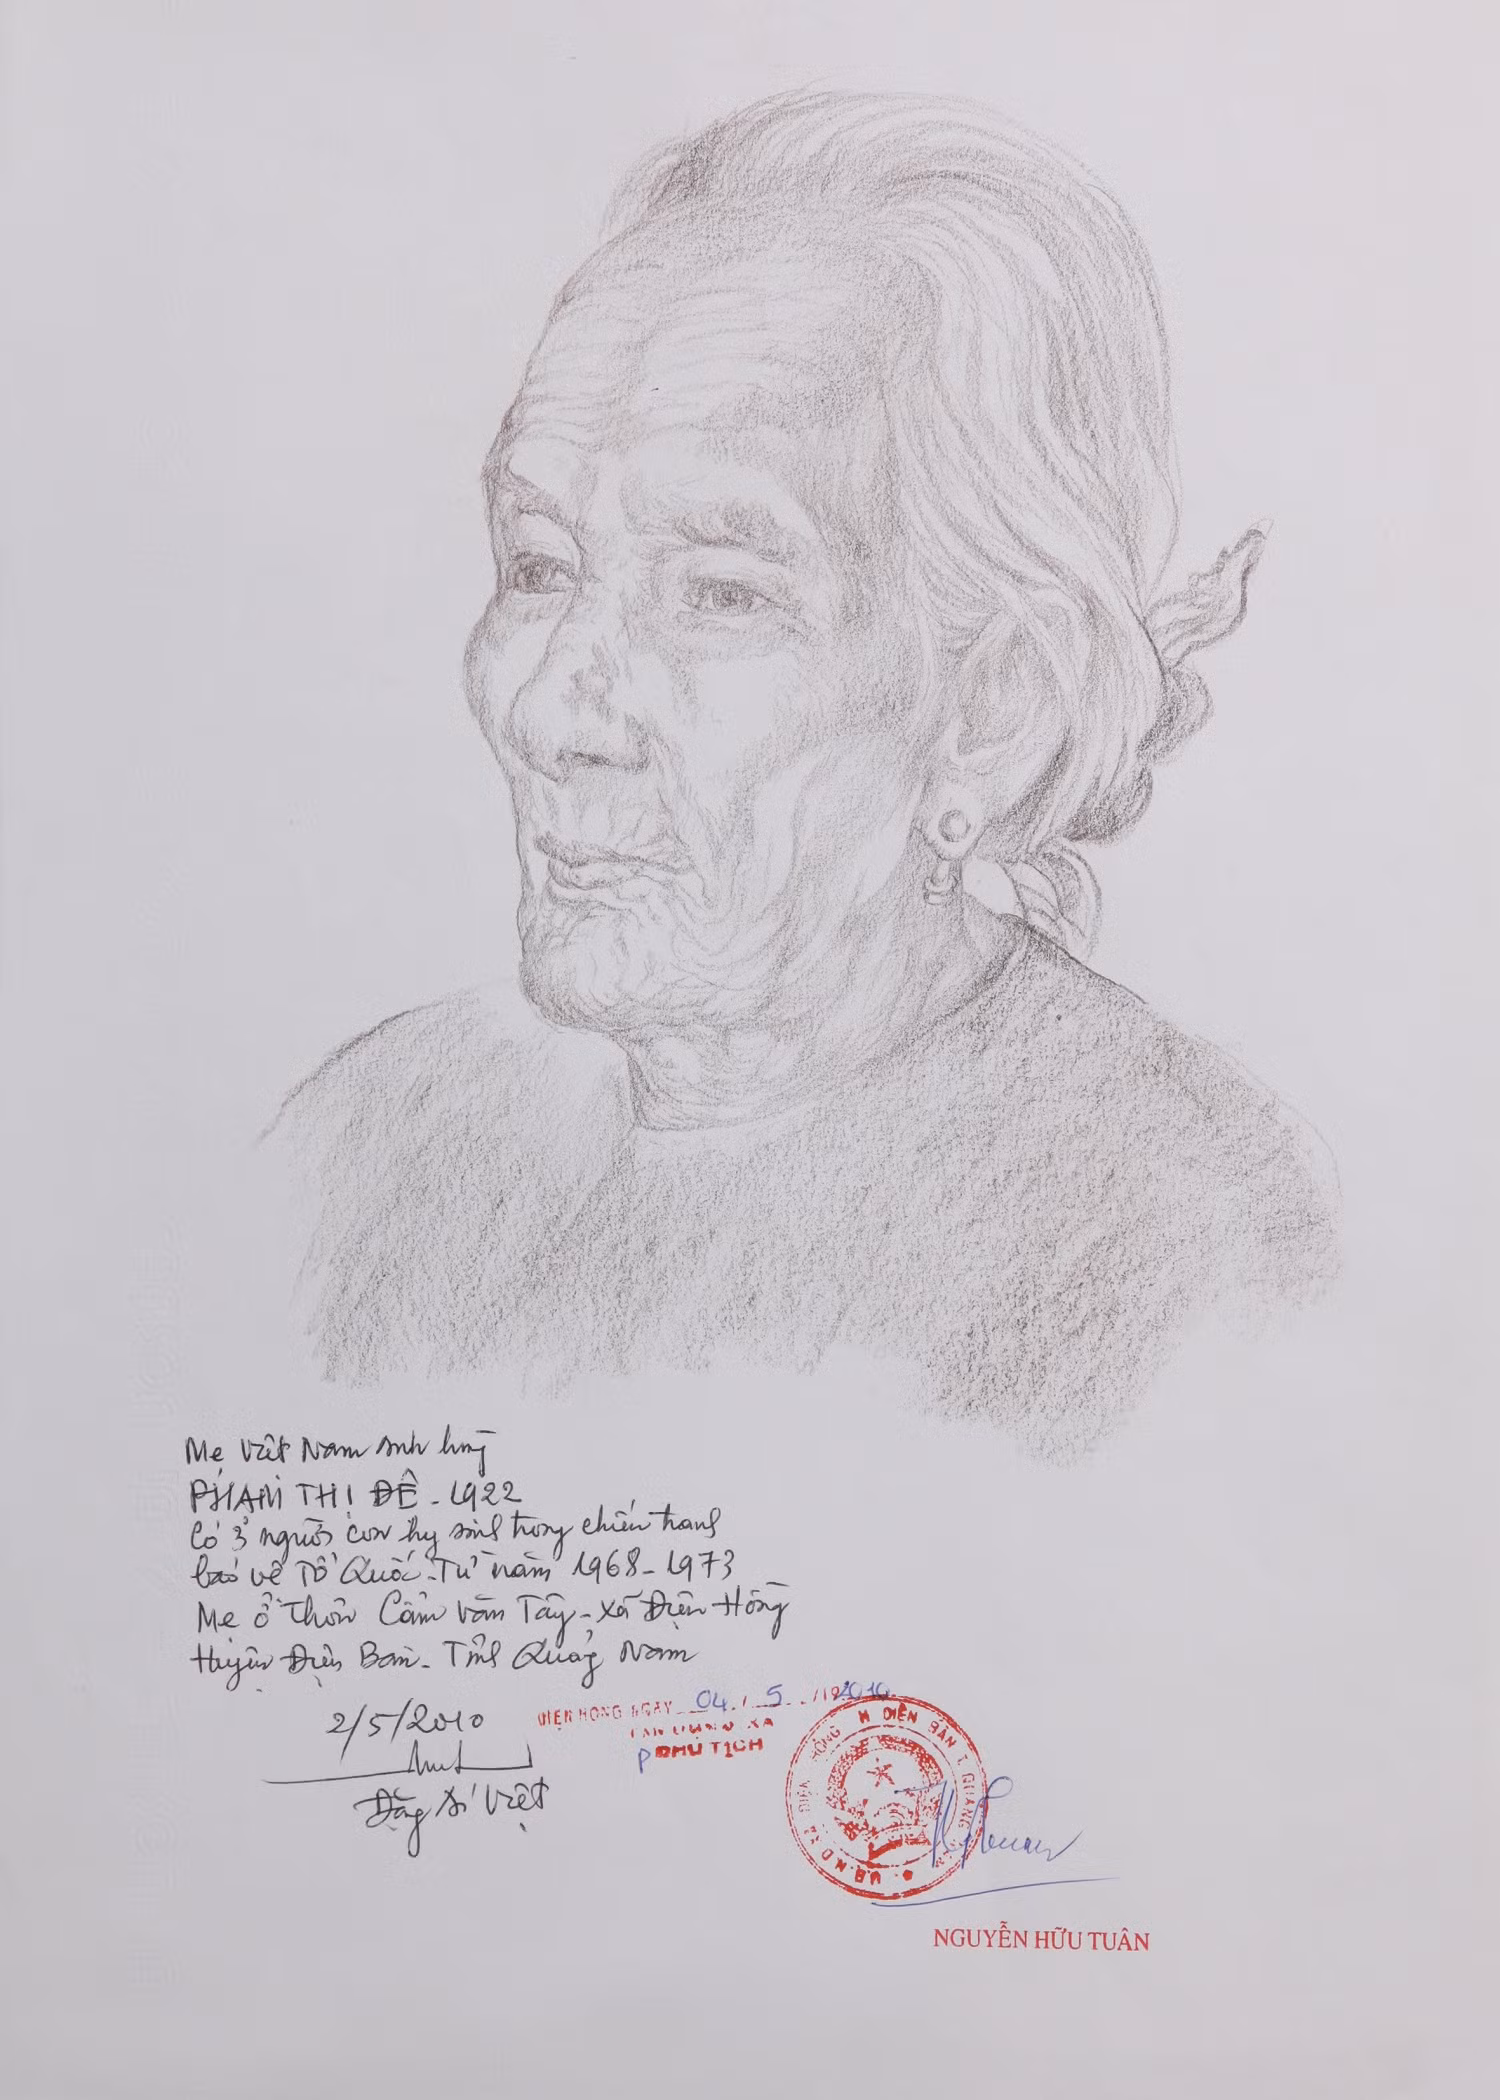 Mẹ Việt Nam anh hùng
PHẠM THỊ ĐÊ - 1922
Có 3 người con hy sinh trong chiến tranh
bảo vệ Tổ Quốc. Từ năm 1968 - 1973
Mẹ ở Thôn Cẩm Văn Tây - xã Điện Hồng
Huyện Điện Bàn - Tỉnh Quảng Nam
2/5/2010
Đặng Ái Việt
ĐIỆN HỒNG NGÀY 04 / 5 / 2010
P CHỦ TỊCH
U.B.N.D XÃ ĐIỆN HỒNG H ĐIỆN BÀN T. QUẢNG
NGUYỄN HỮU TUÂN